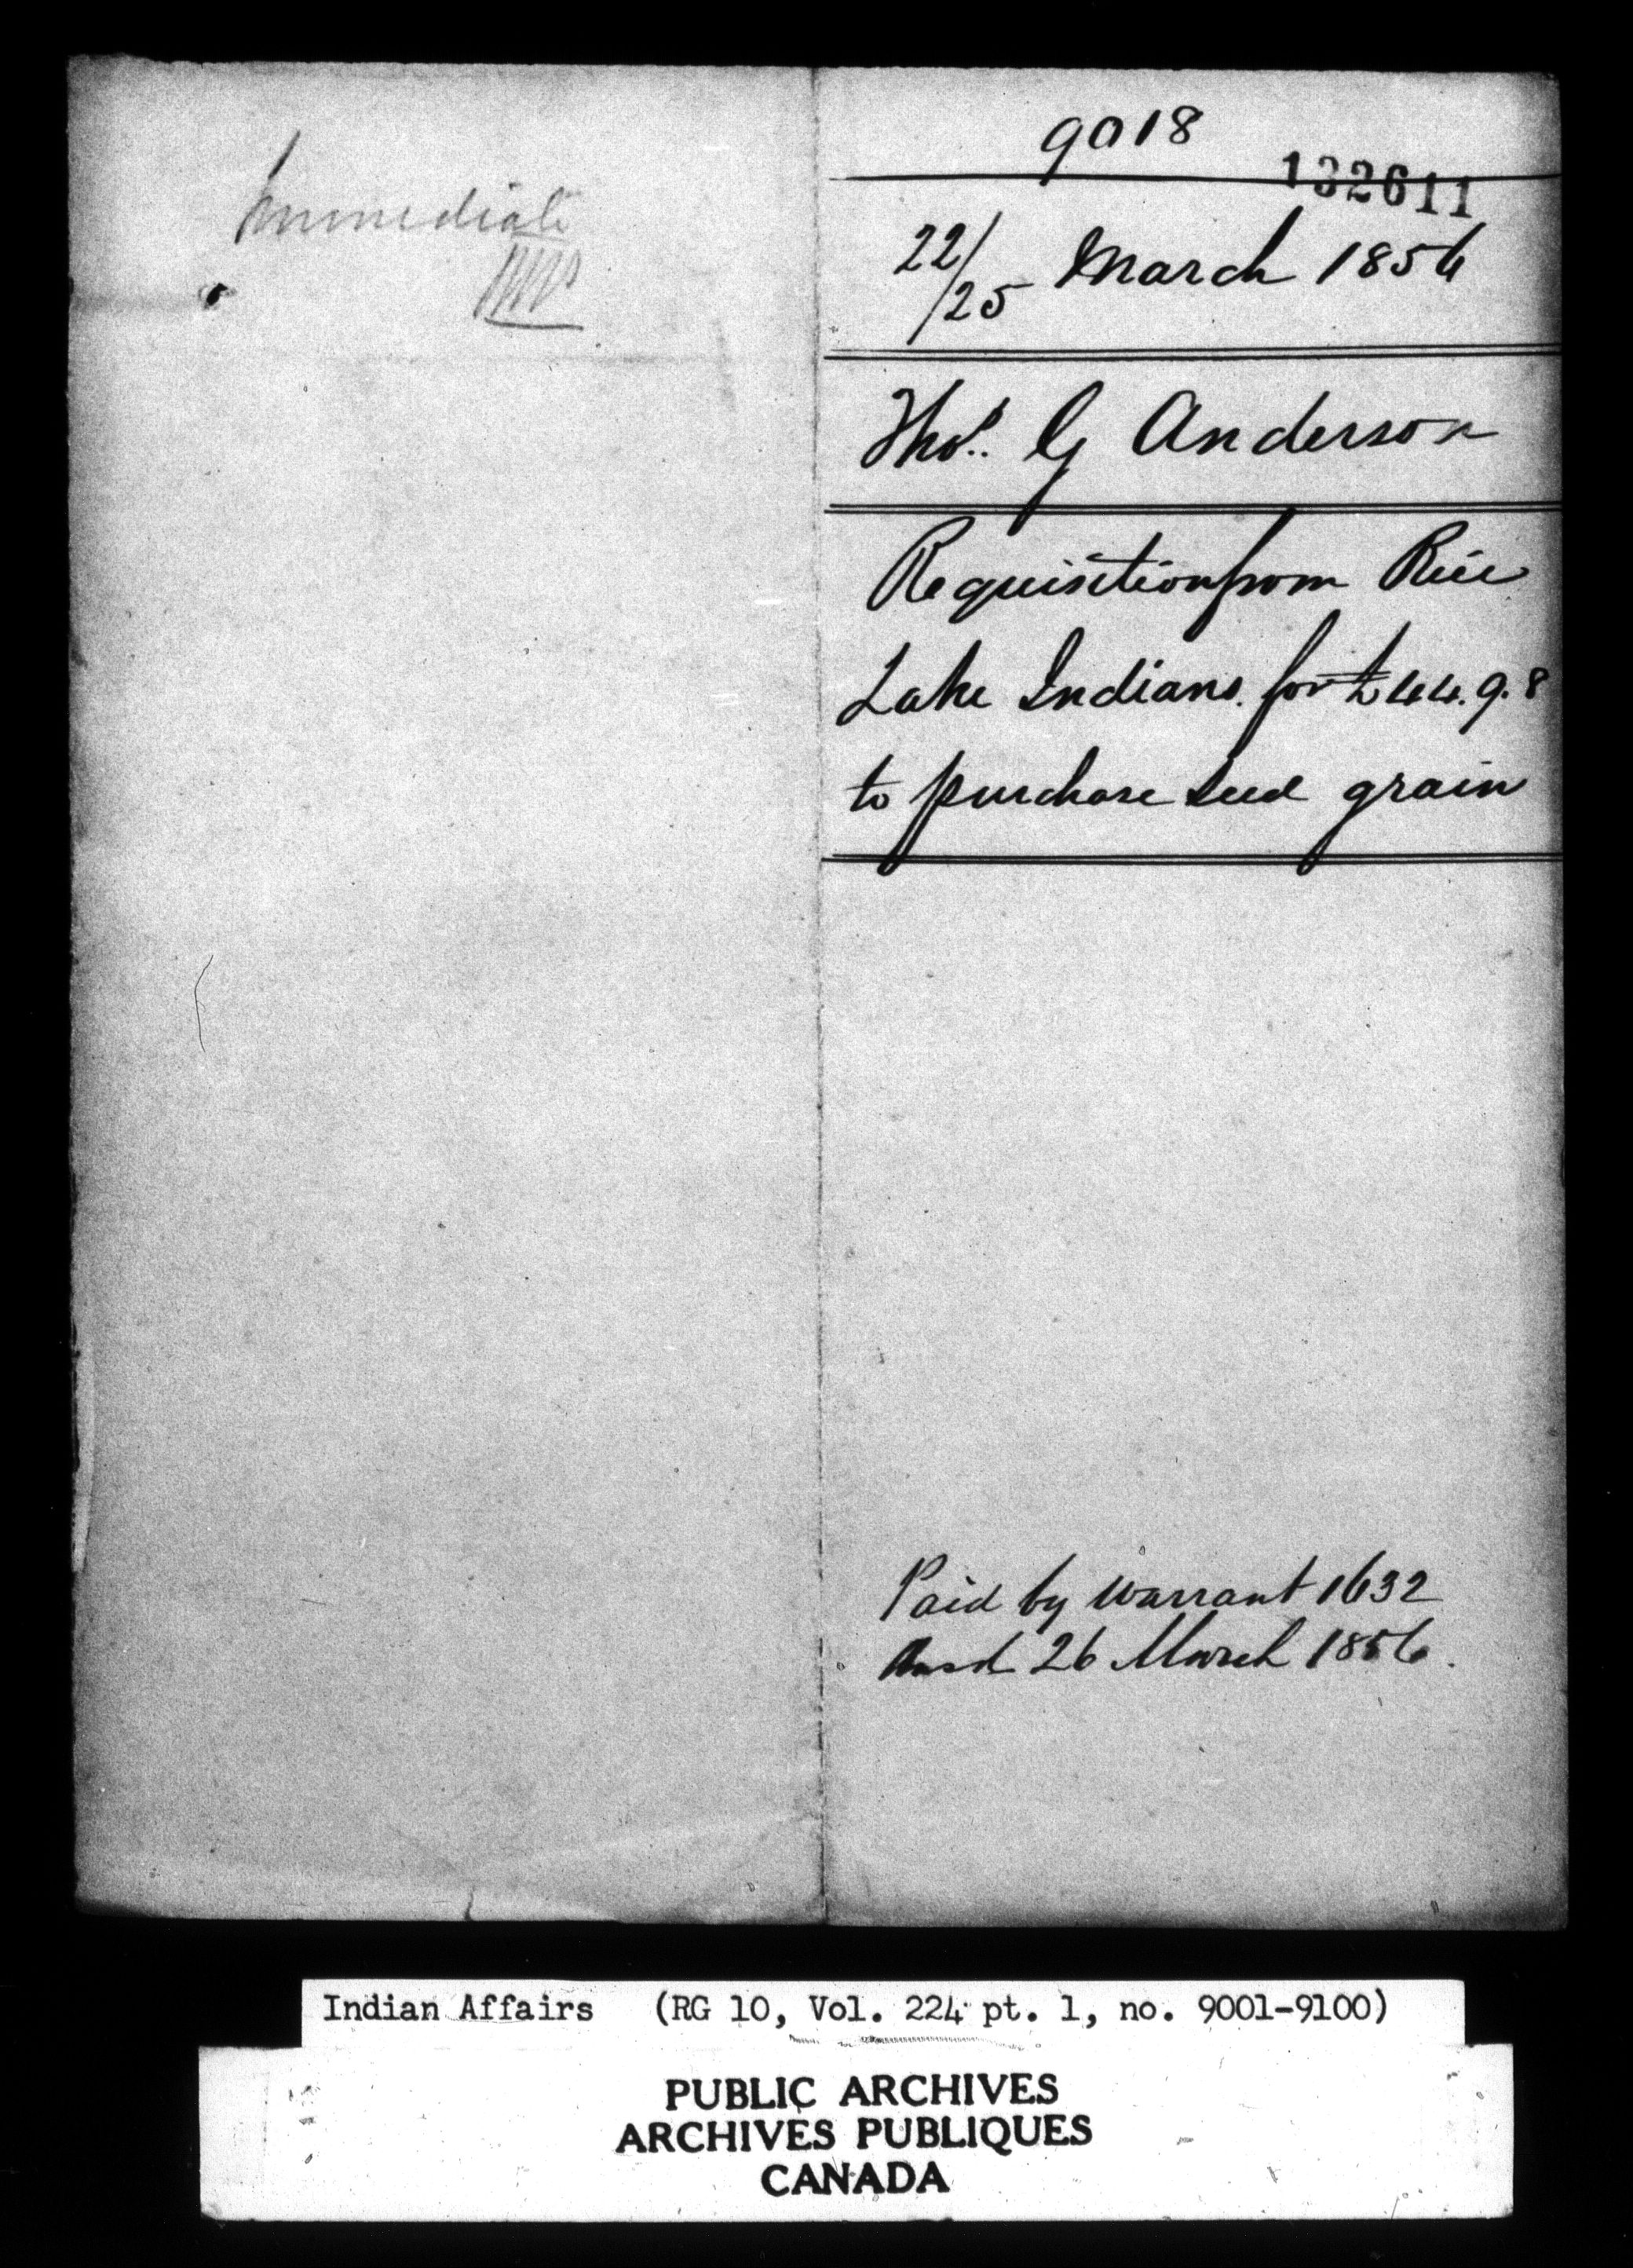 Immediate
9018
132611
22/25 March 1856
Thos. G Anderson
Requisition from Rice
Lake Indians for £44.9.8
to purchase seed grain
Paid by Warrant 1632
Ansd 26 March 1856.
Indian Affairs (RG 10, Vol. 224 pt. 1, no. 9001-9100)
PUBLIC ARCHIVES
ARCHIVES PUBLIQUES
CANADA